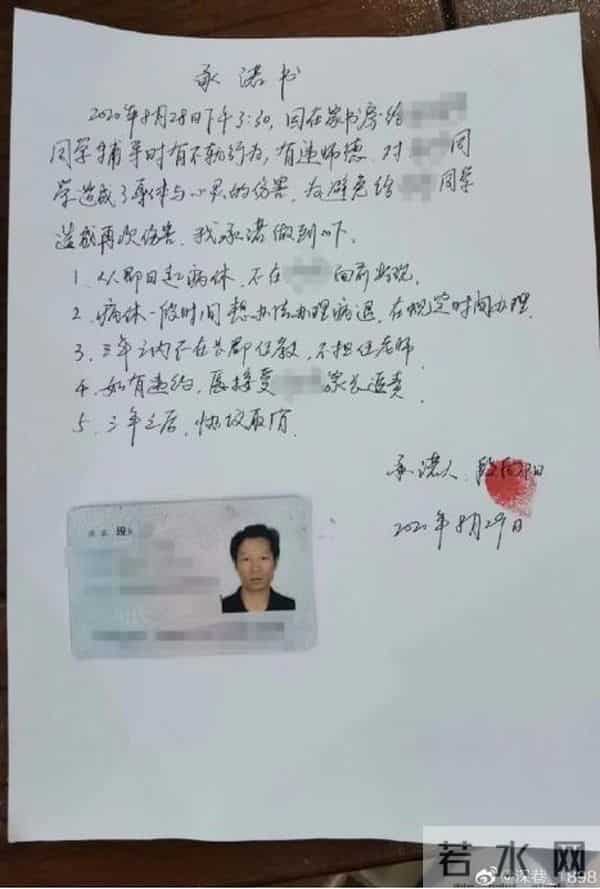 承诺书
2020年8月28日下午3:30,因在家书房给
同学辅导时有不轨行为,有违师德.对 同
学造成了身体与心灵的伤害.为避免给 同学
造成再次伤害.我承诺做到以下.
1.从即日起病休.不在 面前出现.
2.病休一段时间想办法办理病退,在规定时间办理.
3.三年之内不在 任教,不担任老师
4.如有违约,愿接受 家长追责.
5.三年之后,协议取消.
承诺人:段向阳
2020年8月29日
姓名 段
若水网
@深巷_1898